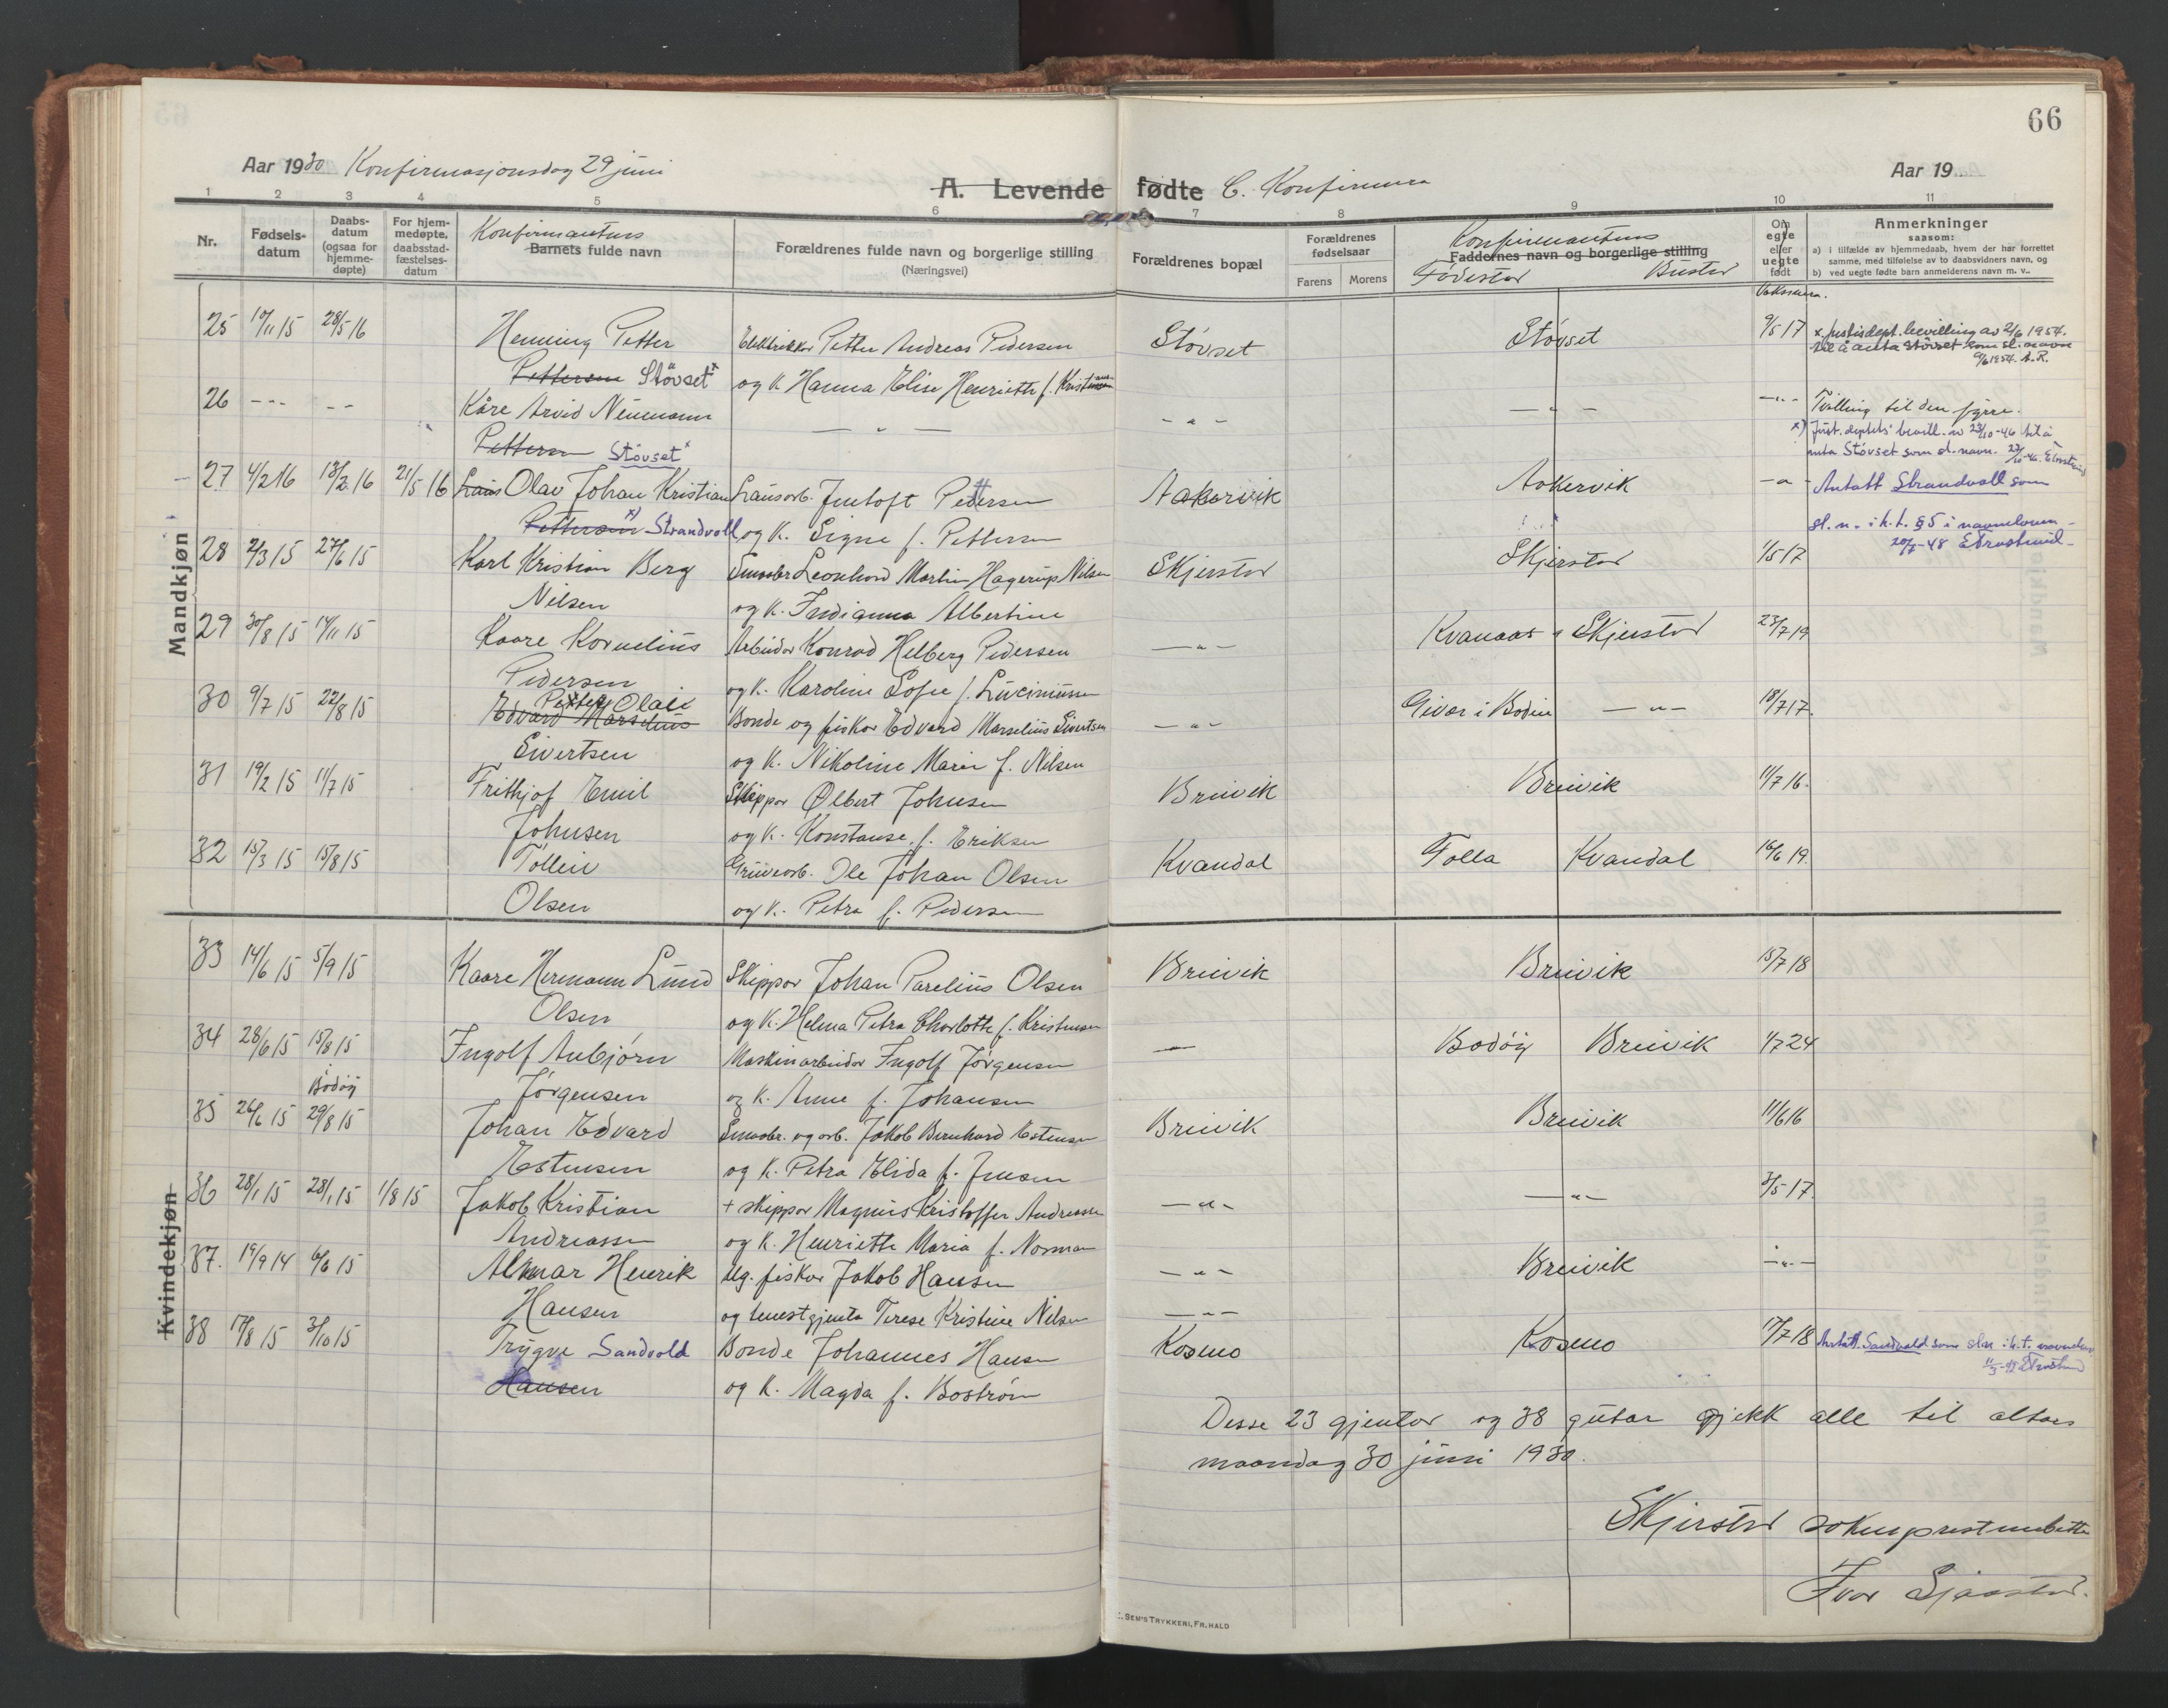 66
Aar 1930 Konfirmasjonsdag 29 juni
A. Levende fødte C. Konfirmera
Aar 19
1 2 3 4 5 6 7 8 9 10 11
Nr.
Fødsels-
datum
Daabs-
datum
(ogsaa for
hjemme-
døpte)
For hjem-
medøpte,
daabsstad-
fæstelses-
datum
Konfirmantens
Barnets fulde navn
Forældrenes fulde navn og borgerlige stilling
(Næringsvei)
Forældrenes bopæl
Forældrenes
fødselsaar
Farens Morens
Konfirmantens
Faddernes navn og borgerlige stilling
Fødestad Bustad
Om
egte
eller
uegte
født
Anmerkninger
saasom:
a) i tilfælde av hjemmedaab, hvem der har forrettet
samme, med tilføielse av to daabsvidners navn, og
b) ved uegte fødte barn anmelderens navn m. v..
Vaksinera.
Mandkjøn
25 10/11 15 28/5 16 Henning Petter Elektriker Petter Andreas Pedersen Støvset Støvset 9/5 17 x. Justisdept. bevilling av 2/6 1954.
til å anta Støvset som sl. navn
Pettersen Støvset x og k. Hanna Elise Henriette f. Kristiansen 9/6 1954. A.R.
26 --- -- Kåre Arvid Neumann — " — - " - — " — -"- Tvilling til den fyrre.
Pettersen Støvset x x) Just. deptets bevill. av 23/10-46 til å
anta Støvset som sl. navn.
27 4/2 16 13/2 16 21/5 16 Laus Olav Johan Kristian Lausarb. Jentoft Pettersen Aakervik Aakervik -"- Antatt Strandvoll som
Pettersen x) Strandvoll og k. Signe f. Pettersen sl. n. i h. t. § 5 i navneloven
20/7-48 ETrostrud
28 2/3 15 27/6 15 Karl Kristian Berg Smaabr Leonhard Martin Hagerup Nilsen Skjerstad Skjerstad 1/5 17
Nilsen og k. Indianna Albertine
29 30/8 15 14/11 15 Kaare Kornelius Arbeidar Konrad Helberg Pedersen — " — Kvanaas i Skjerstad 23/7 19
Pedersen og k. Karoline Sofie f.
30 9/7 15 22/8 15 Petter Olai Edvard Marselius Bonde og fiskar Edvard Marselius Sivertsen — " — Givær i Bodin — " — 18/7 17.
Sivertsen og k. Nikoline Marie f. Nilsen
31 19/2 15 11/7 15 Frithjof Emil Skippar Ølbert Johnsen Breivik Breivik 11/7 16.
Johnsen og k. Konstanse f. Eriksen
32 15/3 15 15/8 15 Tollein Gruvearb. Ole Johan Olsen Kvandal Folla Kvandal 16/6 19.
Olsen og k. Petra f. Pedersen
33 14/6 15 5/9 15 Kaare Hermann Lund Skippar Johan Parelius Olsen Breivik Breivik 15/7 18
Olsen og k. Helma Petra Charlotte f. Kristensen
34 28/6 15 15/8 15 Ingolf Anbjørn Maskinarbeidar Ingolf Jørgensen — Bodøy Breivik 1/7 24
i Bodøy Jørgensen og k. Anne f. Johansen
35 26/6 15 29/8 15 Johan Edvard Smaabr. og arb. Jakob Bernhard Estensen Breivik Breivik 11/6 16
Estensen og k. Petra Elida f. Jensen
Kvindekjøn
36 28/1 15 28/1 15 1/8 15 Jakob Kristian + skippar Magnus Kristoffer Andreassen — " — — " — 3/5 17
Andreassen og k. Henriette Maria f. Norman
37. 19/9 14 6/6 15 Almar Henrik Ug. fiskar Jakob Hansen — " — Breivik -"-
Hansen og tenestgjenta Terese Kristine Nilsen — " —
38 17/8 15 3/10 15 Trygve Sandvold Bonde Johannes Hansen Kosmo Kosmo 17/7 18 Antatt Sandvold som sl.n. i h.t. navneloven
Hansen og k. Magda f. Boström
Desse 23 gjentor og 38 gutar gjekk alle til altars
maandag 30 juni 1930.
Skjerstad sokneprestembette
Ivar Sjaastad.
E. SEM'S TRYKKERI, FR. HALD